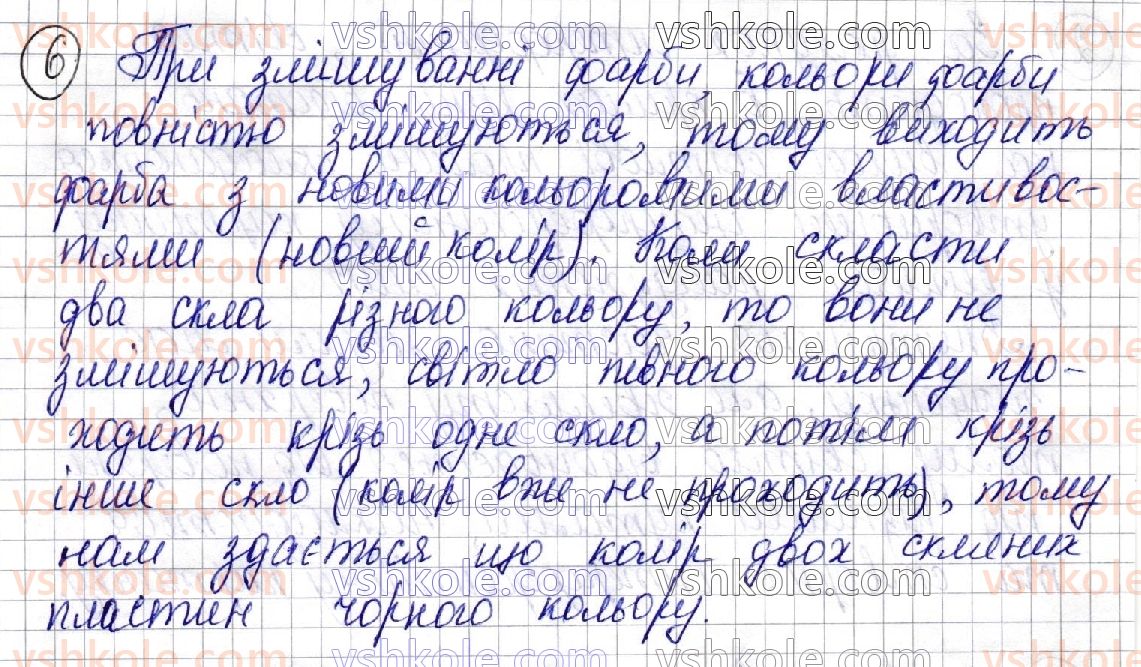 6 При змішуванні фарби, кольори фарби
повністю змішуються, тому виходить
фарба з новими кольоровими властивос-
тями (новий колір). Коли скласти
два скла різного кольору, то вони не
змішуються, світло певного кольору про-
ходить крізь одне скло, а потім крізь
інше скло (колір вже не проходить), тому
нам здається що колір двох скляних
пластин чорного кольору.